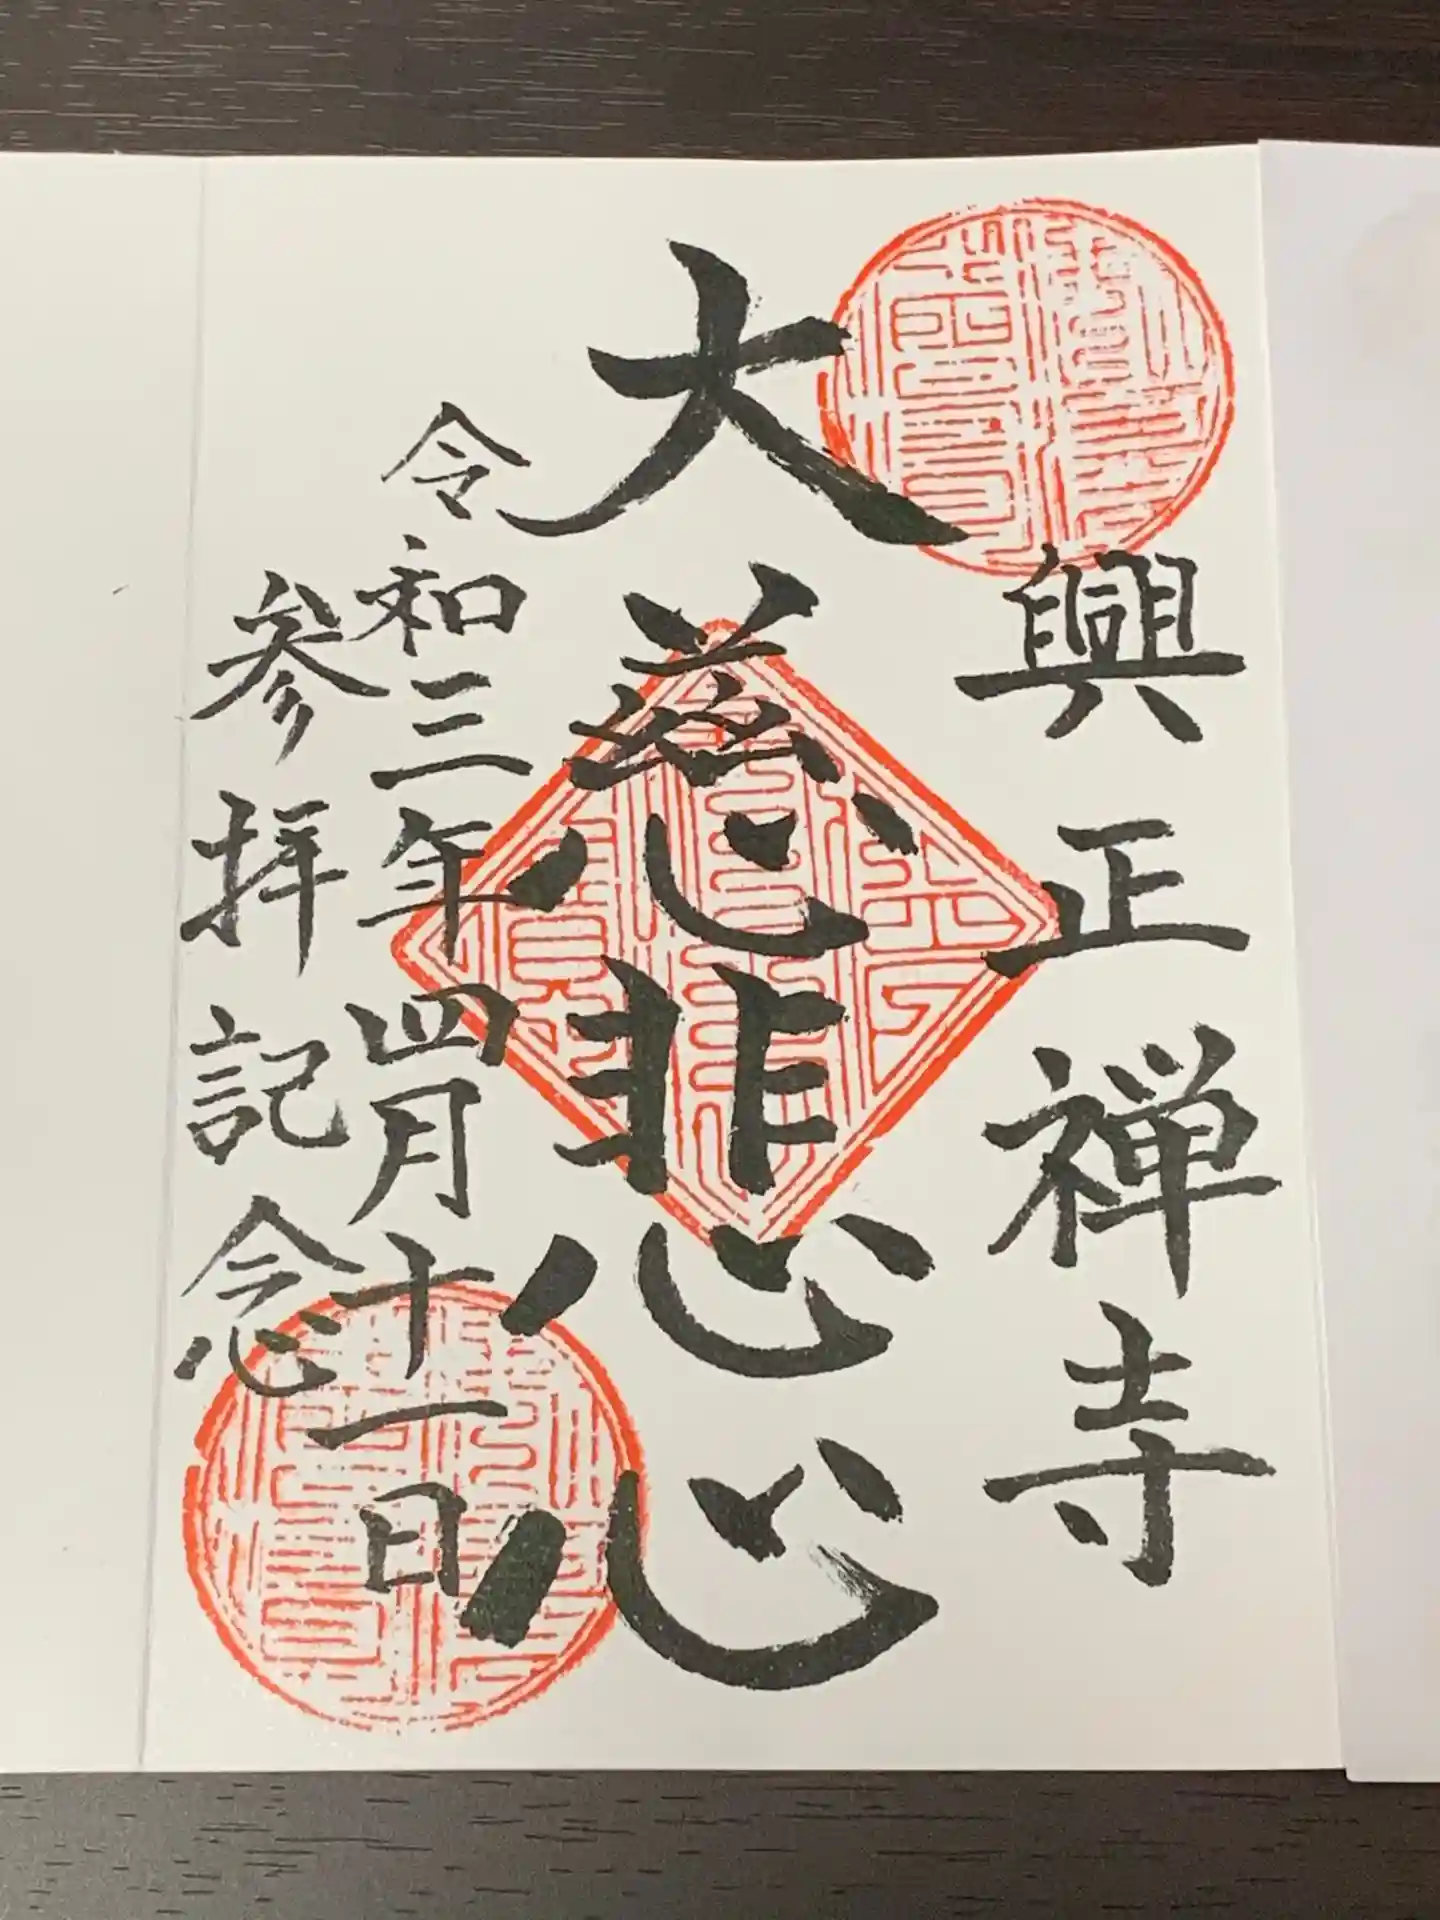 興正禅寺
大慈悲心
令和三年四月十一日
参拝記念